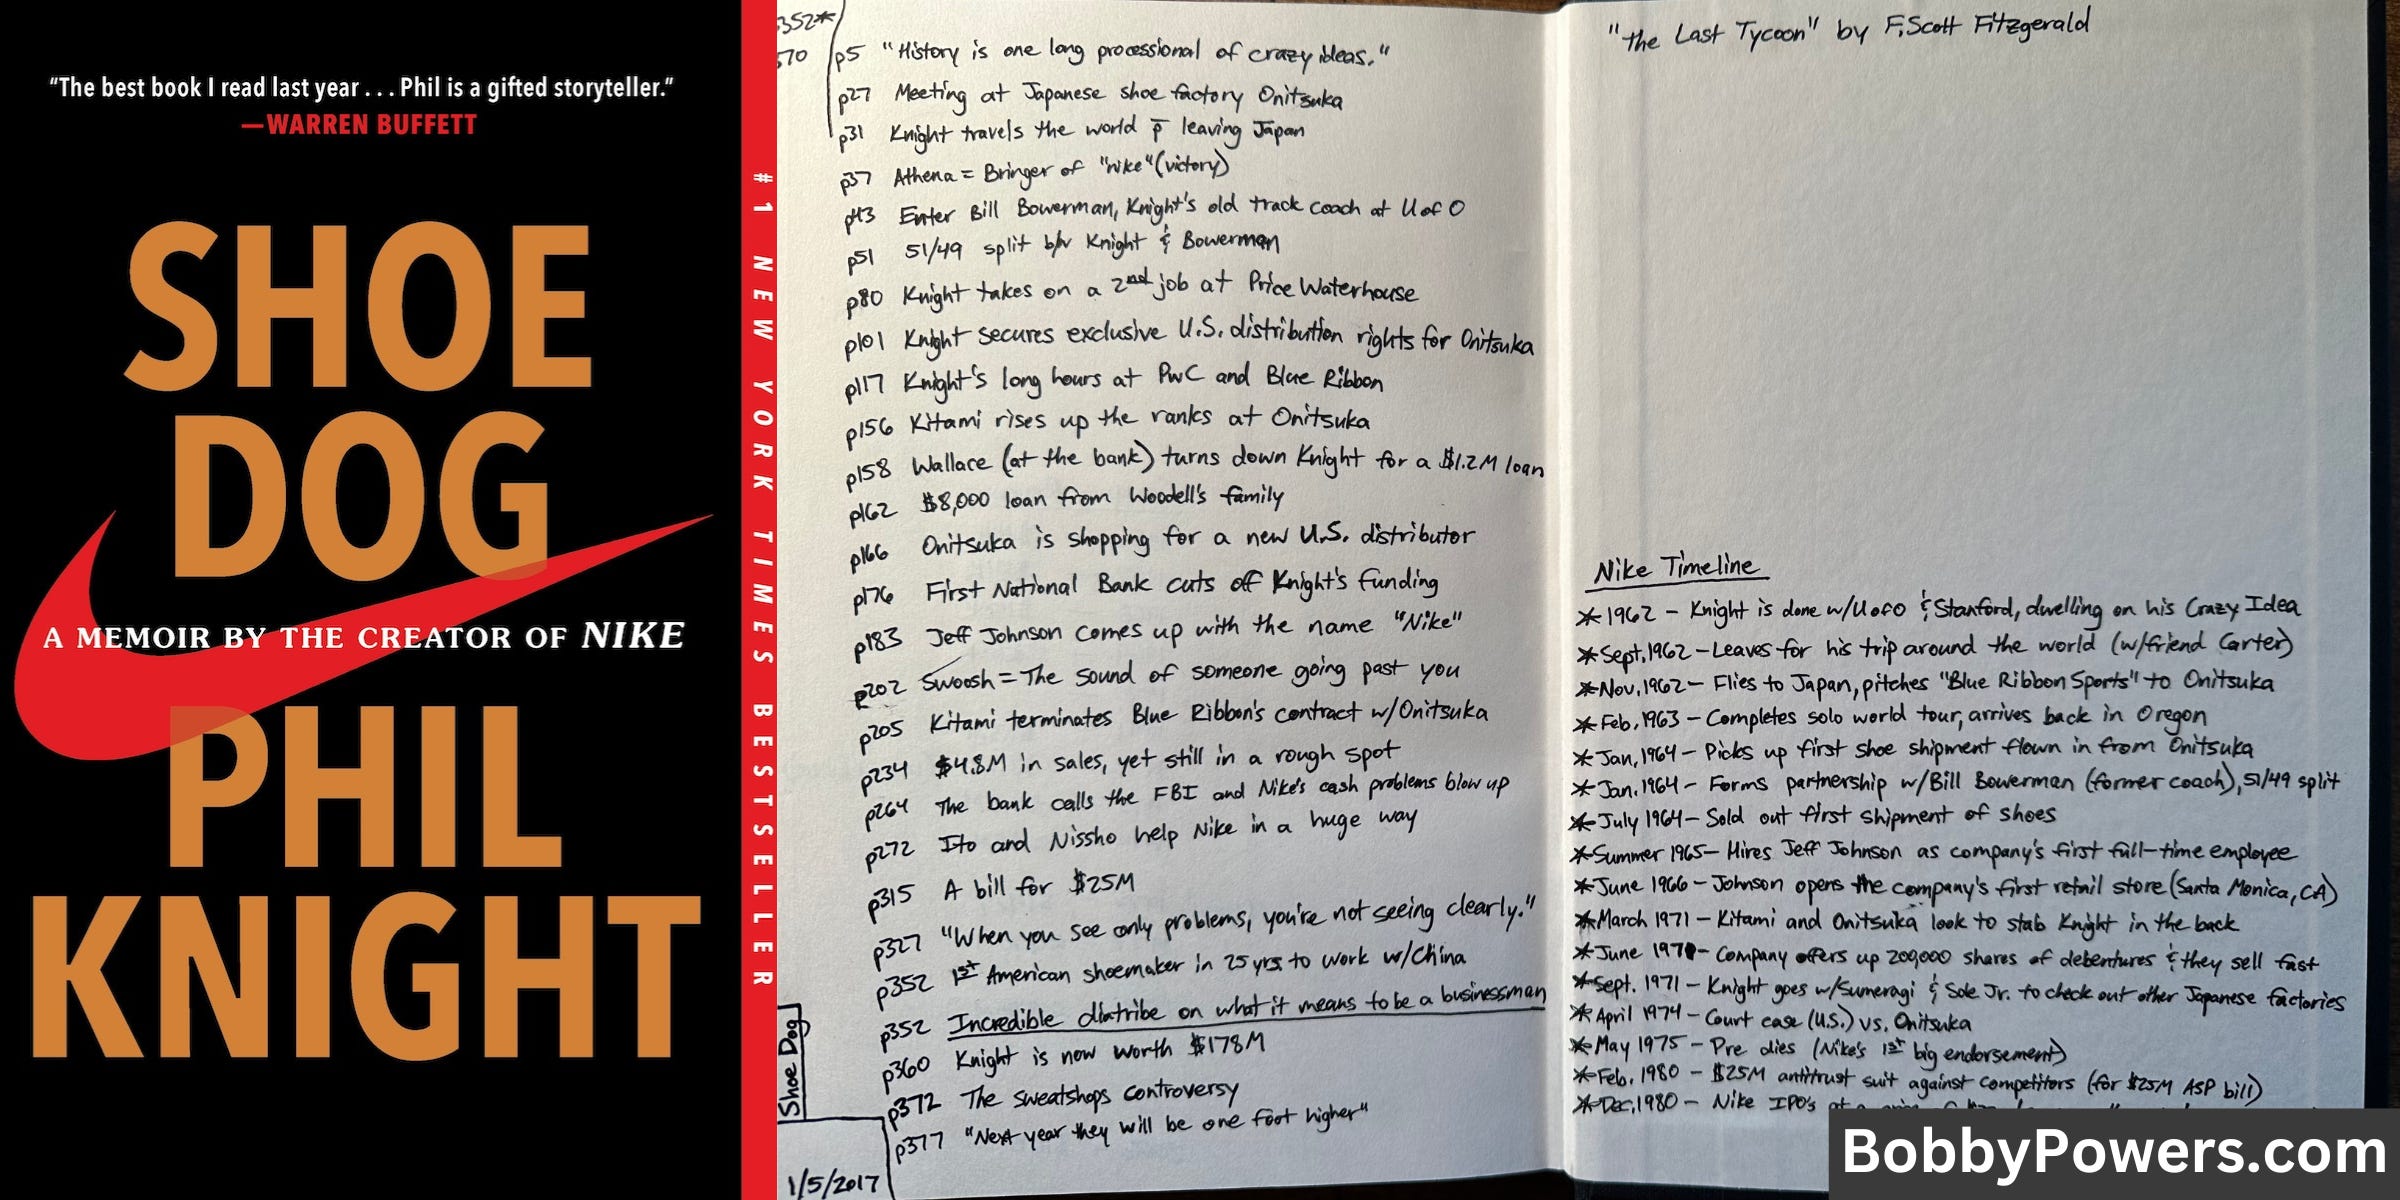 “The best book I read last year . . . Phil is a gifted storyteller.”
—WARREN BUFFETT
SHOE
DOG
A MEMOIR BY THE CREATOR OF NIKE
PHIL
KNIGHT
#1 NEW YORK TIMES BESTSELLER
352*
370
p5 "History is one long processional of crazy ideas."
p27 Meeting at Japanese shoe factory Onitsuka
p31 Knight travels the world p̄ leaving Japan
p37 Athena = Bringer of "nike" (victory)
p43 Enter Bill Bowerman, Knight's old track coach at U of O
p51 51/49 split b/w Knight & Bowerman
p80 Knight takes on a 2nd job at Price Waterhouse
p101 Knight secures exclusive U.S. distribution rights for Onitsuka
p117 Knight's long hours at PwC and Blue Ribbon
p156 Kitami rises up the ranks at Onitsuka
p158 Wallace (at the bank) turns down Knight for a $1.2M loan
p162 $8,000 loan from Woodell's family
p166 Onitsuka is shopping for a new U.S. distributor
p176 First National Bank cuts off Knight's funding
p183 Jeff Johnson comes up with the name "Nike"
p202 Swoosh = The sound of someone going past you
p205 Kitami terminates Blue Ribbon's contract w/Onitsuka
p234 $4.8M in sales, yet still in a rough spot
p264 The bank calls the FBI and Nike's cash problems blow up
p272 Ito and Nissho help Nike in a huge way
p315 A bill for $25M
p327 "When you see only problems, you're not seeing clearly."
p352 1st American shoemaker in 25 yrs to work w/China
p352 Incredible diatribe on what it means to be a businessman
p360 Knight is now worth $178M
p372 The sweatshops controversy
p377 "Next year they will be one foot higher"
Shoe Dog
1/5/2017
"The Last Tycoon" by F. Scott Fitzgerald
Nike Timeline
* 1962 - Knight is done w/U of O & Stanford, dwelling on his Crazy Idea
* Sept. 1962 - Leaves for his trip around the world (w/friend Carter)
* Nov. 1962 - Flies to Japan, pitches "Blue Ribbon Sports" to Onitsuka
* Feb. 1963 - Completes solo world tour, arrives back in Oregon
* Jan. 1964 - Picks up first shoe shipment flown in from Onitsuka
* Jan. 1964 - Forms partnership w/Bill Bowerman (former coach), 51/49 split
* July 1964 - Sold out first shipment of shoes
* Summer 1965 - Hires Jeff Johnson as company's first full-time employee
* June 1966 - Johnson opens the company's first retail store (Santa Monica, CA)
* March 1971 - Kitami and Onitsuka look to stab Knight in the back
* June 1971 - Company offers up 200,000 shares of debentures & they sell fast
* Sept. 1971 - Knight goes w/Sumeragi & Sole Jr. to check out other Japanese factories
* April 1974 - Court case (U.S.) vs. Onitsuka
* May 1975 - Pre dies (Nike's 1st big endorsement)
* Feb. 1980 - $25M antitrust suit against competitors (for $25M ASP bill)
* Dec. 1980 - Nike IPO's at a
BobbyPowers.com